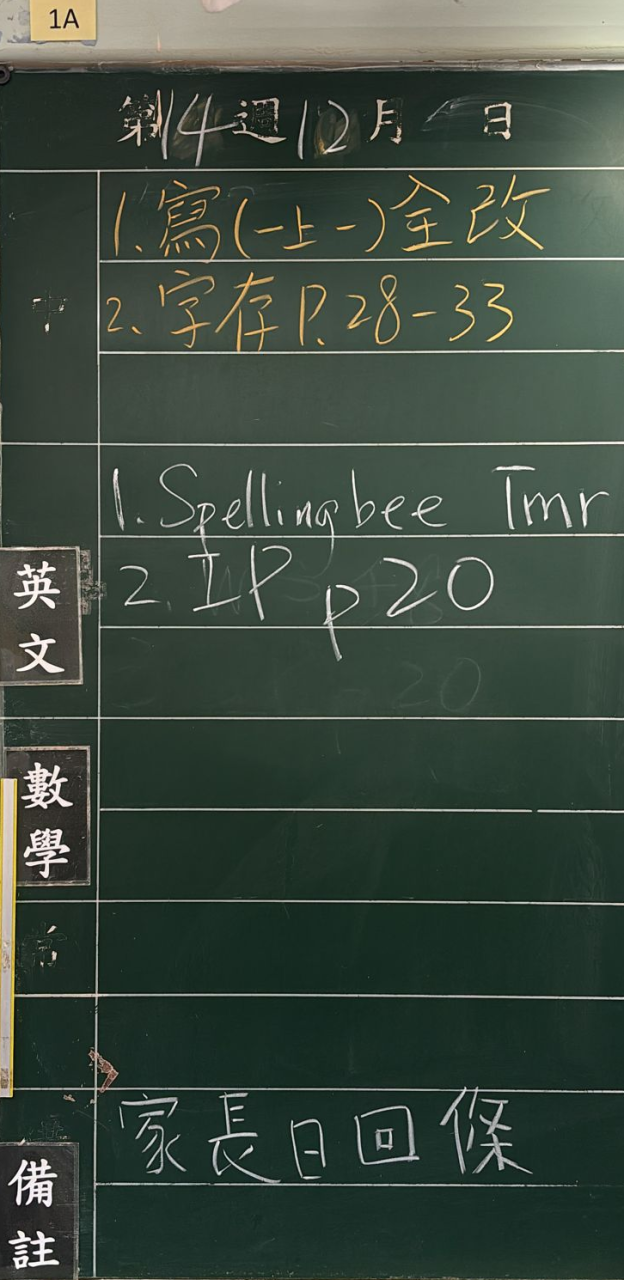 1A
第14週12月 日
1.寫(一上一)全改
中
2.字存P.28-33
1.Spellingbee Tmr
英文
2.IP p20
20
數學
常
家長日回條
備註